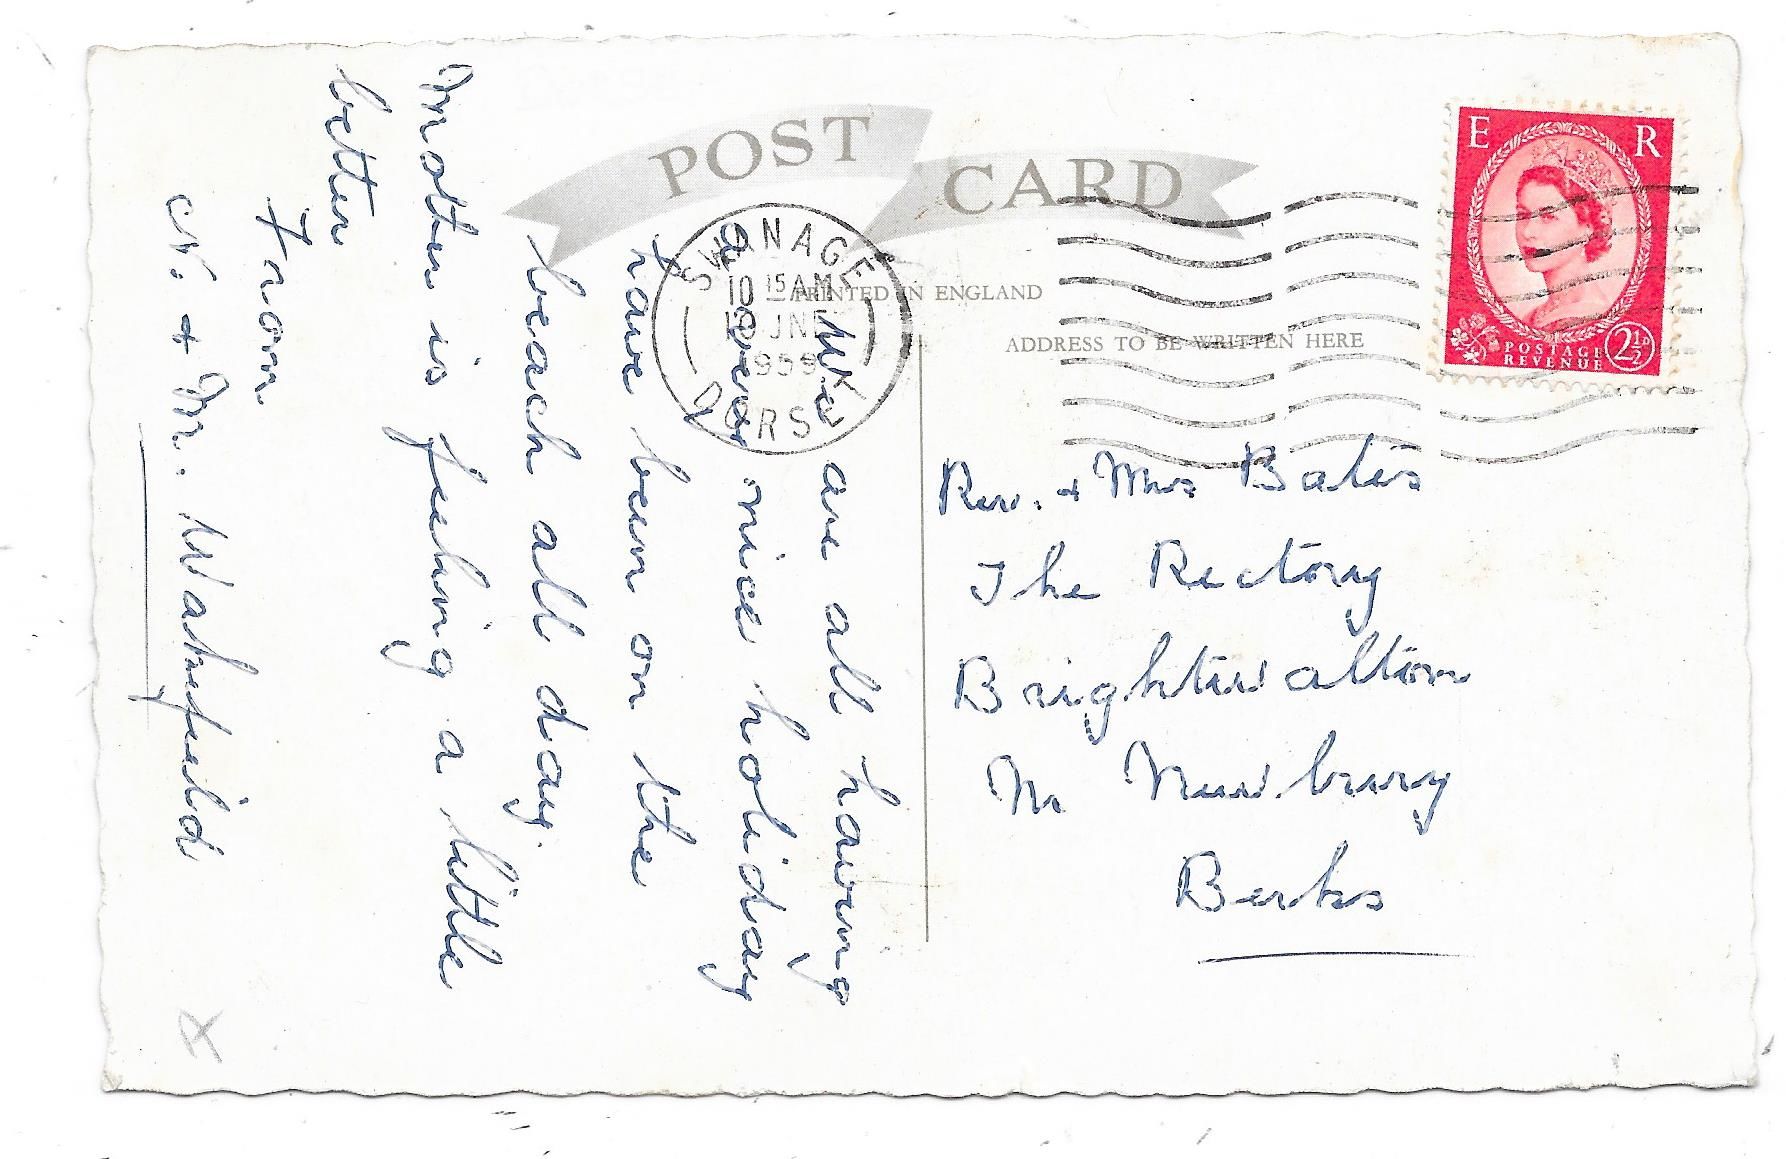 POST CARD
PRINTED IN ENGLAND
ADDRESS TO BE WRITTEN HERE
SWANAGE
10 15 AM
JNE
1959
DORSET
E R
POSTAGE
REVENUE
2½D
We are all having
a very nice holiday
have been on the
beach all day.
Mother is feeling a little
better
From
N. & Mr. Wakefield
Rev. & Mrs Bates
The Rectory
Brightwalton
Nr Newbury
Berks